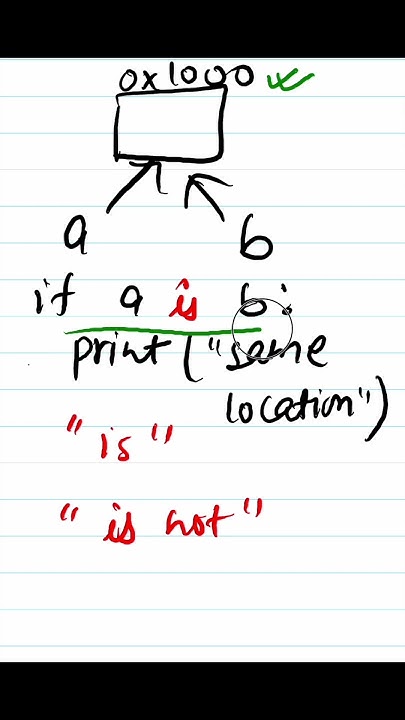 0x1000
a b
if a is b:
print("same
location")
"is"
"is not"